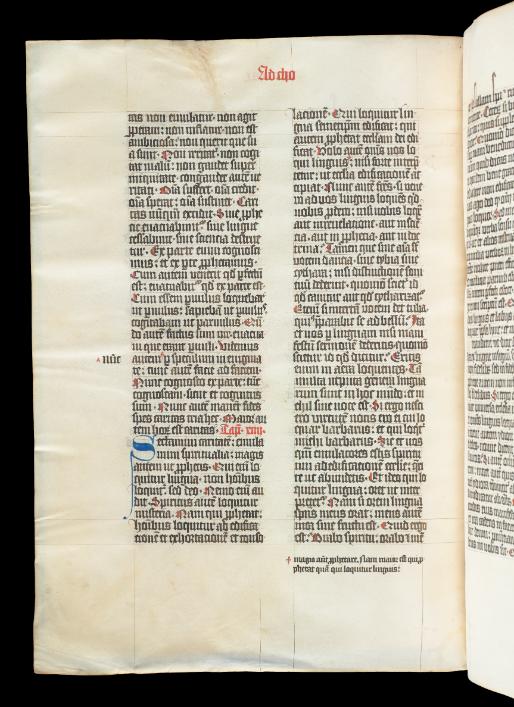 Ad cho
tas non emulatur. non agit
ꝑperam: non inflatur. non est
ambiciosa: non querit que su
a sunt. Non irritat᷑. non cogi
tat malū: non gaudet super
iniquitate. congaudet autē ue
ritati. Oīa suffert. oīa credit.
oīa sperat: oīa sustinet. Cari
tas nūꝗ̄m excidit. Siue ꝓphe
tie euacuabunt᷑. siue lingue
cessabunt. siue sciencia destrue
tur. Ex parte enim cognosci
mus: et ex ꝑte ꝓphetamus.
Cum autem uenerit qd̄ ꝑfectū
est: euacuabit᷑ qd̄ ex parte est.
Cum essem ꝑuulus loquebar
ut ꝑuulus: sapiebā ut ꝑuulus.
cogitabam ut paruulus. Qn̄
do autē factus sum uir. euacua
ui que erant ꝑuuli. Videmus
nūc
autem ꝑ speculum in enigma
te: tunc autē facie ad faciem.
Nunc cognosco ex parte: tūc
cognoscam. sicut et cognitus
sum. Nunc autē manēt fides
spes caritas tria hec. Maior au
tem hor̄ est caritas. Cap. xiiii.
Sectamini caritatē: emula
mini spiritualia: magis
autem ut ꝓphetetis. Qui enī lo
quitur lingua. non hōibus
loquit᷑. sed deo. Nemo enī au
dit. Spiritus autē loquitur
misteria. Nam qui ꝓphetat:
hōibus loquitur ad edifica
tionē et exhortationē et conso
lationē. Qui loquitur lin
gua semetipsum edificat: qui
autem ꝓphetat ecclesiam dei edi
ficat. Volo autē om̄s uos lo
qui linguis: nisi forte interp̄
tetur: ut ecclesia edificationē ac
cipiat. Nunc autē frēs: si uene
ro ad uos linguis loquēs qd̄
uobis ꝓdero: nisi uobis loqr̄
aut in reuelatione. aut in sciē
cia. aut in ꝓphecia. aut in doc
trina: Tamen que sine aīa sūt
uocem dancia. siue tybia siue
cythara: nisi distinctionē soni
tuū dederint. quomō sciet᷑ id
qd̄ canitur aut qd̄ cytharizat᷑.
Etenī si incertā uocem det tuba.
quis parabit se ad bellū: Ita
et uos ꝑ linguam nisi mani
festū sermonē dederitis. quomō
scietur id qd̄ dicitur. Eritis
enim in aera loquentes. Tā
multa utputa genera lingua
rum sunt in hoc mūdo: et ni
chil sine uoce est. Si ergo nesci
ero uirtutē uocis ero ei cui lo
quar barbarus: et qui loqr̄
michi barbarus. Sic et uos
qm̄ emulatores estis spiritu
um ad edificationē ecclesie: que
rite ut abundetis. Et ideo qui lo
quitur lingua: oret ut inter
pretet᷑. Nam si orem lingua
spūs meus orat: mens autē
mea sine fructu est. Quid ergo
est: Orabo spiritu: orabo mēte
magis autē ꝓphetare. Nam maior est qui ꝓ
phetat quā qui loquitur linguis: